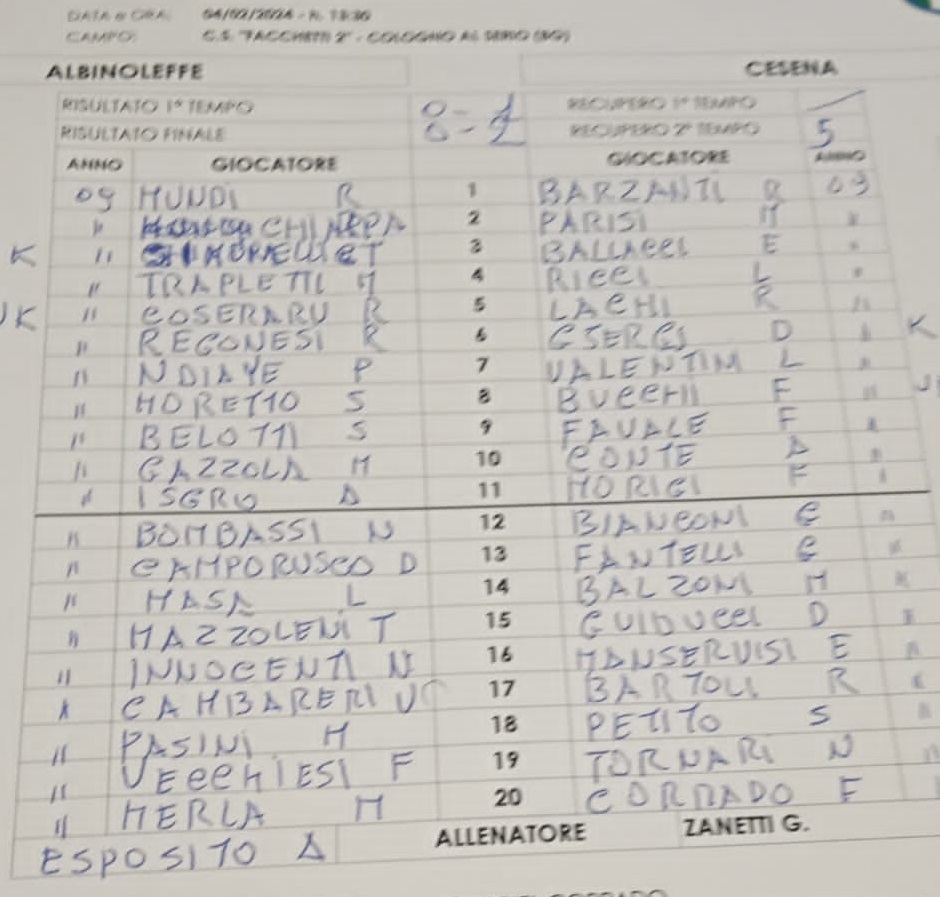 DATA e ORA: 04/02/2024 - h. 13:30
CAMPO: C.S. "FACCHETTI 2" - COLOGNO AL SERIO (BG)
ALBINOLEFFE CESENA
RISULTATO 1° TEMPO 0-1 RECUPERO 1° TEMPO /
RISULTATO FINALE 0-2 RECUPERO 2° TEMPO 5
ANNO GIOCATORE GIOCATORE ANNO
09 MUNDI R 1 BARZANTI R 09
" CHINEPA 2 PARISI M "
K " 3 BALLACCI E "
" TRAPLETTI M 4 RICCI L "
VK " COSERARU R 5 LACHI R "
" REGONESI R 6 CSERGI D " K
" NDIAYE P 7 VALENTIM L "
" MORETTO S 8 BUCCHI F "
" BELOTTI S 9 FAVALE F "
" GAZZOLA M 10 CONTE A "
" ISGRO A 11 MORIGI F "
" BOMBASSI N 12 BIANCONI C "
" CAMPORUSCO D 13 FANTELLI C "
" MASA L 14 BALZONI M "
" MAZZOLENI T 15 GUIDUCCI D "
" INNOCENTI N 16 MANSERVISI E "
" CAMBARERI 17 BARTOLI R "
" PASINI M 18 PETITO S "
" VECCHIESI F 19 TORNARI N "
" MERLA M 20 CORRADO F
ESPOSITO A ALLENATORE ZANETTI G.